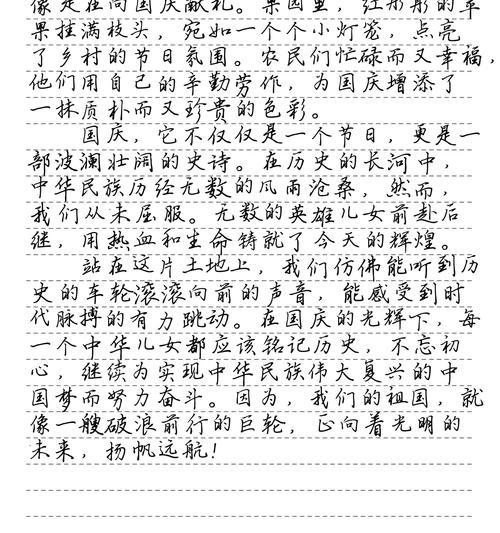 像是在向国庆献礼。果园里，红彤彤的苹
果挂满枝头，宛如一个个小灯笼，点亮
了乡村的节日氛围。农民们忙碌而又幸福，
他们用自己的辛勤劳作，为国庆增添了
一抹质朴而又珍贵的色彩。
国庆，它不仅仅是一个节日，更是一
部波澜壮阔的史诗。在历史的长河中，
中华民族历经无数的风雨沧桑，然而，
我们从未屈服。无数的英雄儿女前赴后
继，用热血和生命铸就了今天的辉煌。
站在这片土地上，我们仿佛能听到历
史的车轮滚滚向前的声音，能感受到时
代脉搏的有力跳动。在国庆的光辉下，每
一个中华儿女都应该铭记历史，不忘初
心，继续为实现中华民族伟大复兴的中
国梦而努力奋斗。因为，我们的祖国，就
像一艘破浪前行的巨轮，正向着光明的
未来，扬帆远航！